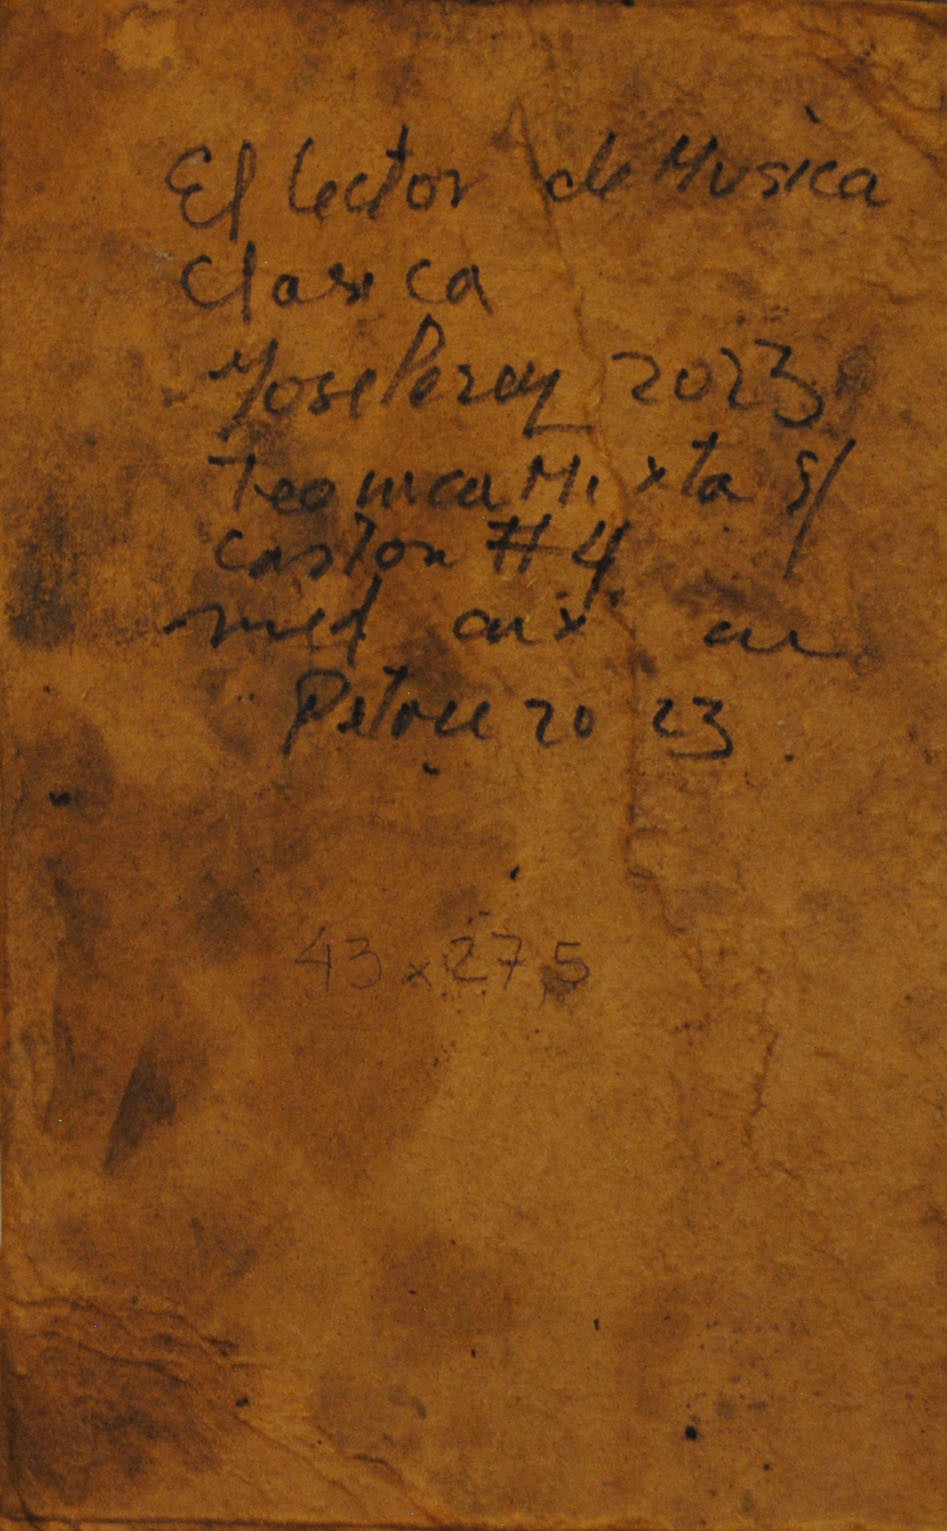 El lector de Musica
Clasica
Jose Perez 2023
Tecnica Mixta s/
carton #4
med
2023
43 x 27 5